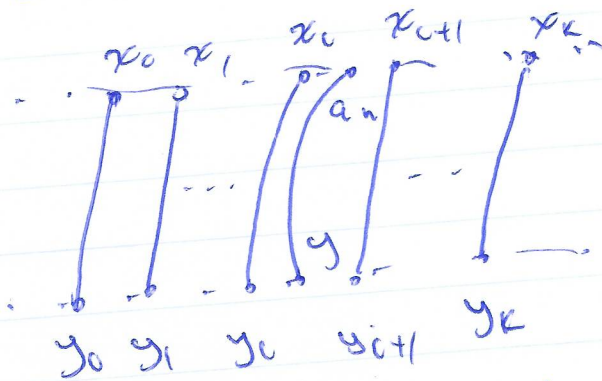 x₀ x₁ xᵢ xᵢ₊₁ xₖ
aₙ
y
y₀ y₁ yᵢ yᵢ₊₁ yₖ